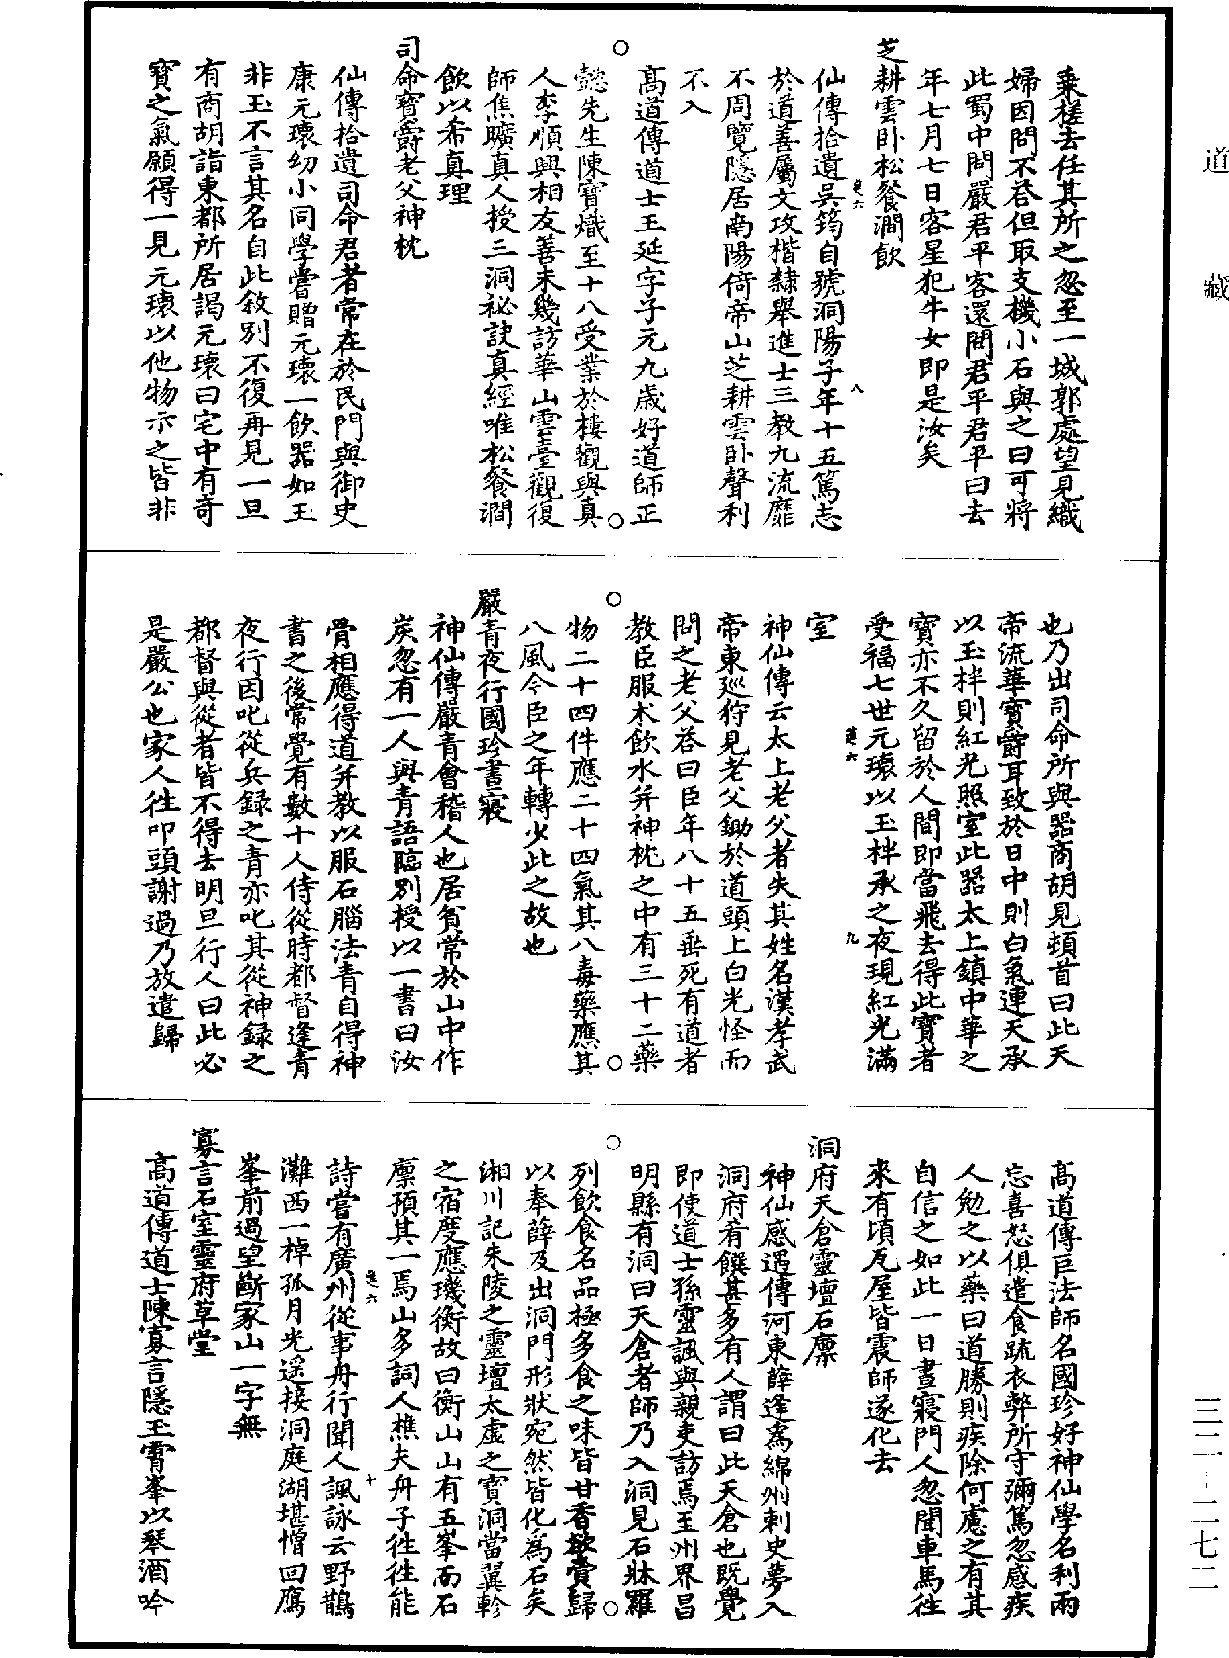 乘槎去任其所之忽至一城郭處望見織
婦因問不荅但取支機小石與之曰可將
此蜀中問嚴君平客還問君平君平曰去
年七月七日客星犯牛女即是汝矣
芝耕雲卧松餐澗飲
仙傳拾遺吳筠自號洞陽子年十五篤志
於道善屬文攻楷隸舉進士三教九流靡
不周覽隱居南陽倚帝山芝耕雲卧聲利
不入
高道傳道士王延字子元九歲好道師正
懿先生陳寶熾至十八受業於樓觀與真
人李順興相友善未幾訪華山雲臺觀復
師焦曠真人授三洞祕訣真經唯松餐澗
飲以希真理
司命寶爵老父神枕
仙傳拾遺司命君者常在於民門與御史
康元瓌幼小同學嘗贈元瓌一飲器如玉
非玉不言其名自此敘別不復再見一旦
有商胡詣東都所居謁元瓌曰宅中有奇
寶之氣願得一見元瓌以他物示之皆非
也乃出司命所與器商胡見頓首曰此天
帝流華寶爵耳致於日中則白氣連天承
以玉柈則紅光照室此器太上鎮中華之
寶亦不久留於人間即當飛去得此寶者
受福七世元瓌以玉柈承之夜現紅光滿
室
神仙傳云太上老父者失其姓名漢孝武
帝東巡狩見老父鋤於道頭上白光怪而
問之老父荅曰臣年八十五垂死有道者
教臣服术飲水并神枕之中有三十二藥
物二十四件應二十四氣其八毒藥應其
八風令臣之年轉少此之故也
嚴青夜行國珍晝寢
神仙傳嚴青會稽人也居貧常於山中作
炭忽有一人與青語臨別授以一書曰汝
骨相應得道并教以服石腦法青自得神
書之後常覺有數十人侍從時都督逢青
夜行因叱從兵錄之青亦叱其從神錄之
都督與從者皆不得去明旦行人曰此必
是嚴公也家人往叩頭謝過乃放遣歸
高道傳巨法師名國珍好神仙學名利兩
忘喜怒俱遣食疏衣弊所守彌篤忽感疾
人勉之以藥曰道勝則疾除何慮之有其
自信之如此一日晝寢門人忽聞車馬往
來有頃瓦屋皆震師遂化去
洞府天倉靈壇石廪
神仙感遇傳河東薛逢為綿州刺史夢入
洞府肴饌甚多有人謂曰此天倉也既覺
即使道士孫靈諷與親吏訪焉至州界昌
明縣有洞曰天倉者師乃入洞見石牀羅
列飲食名品極多食之味皆甘香欲賫歸
以奉薛及出洞門形狀宛然皆化為石矣
湘川記朱陵之靈壇太虛之寶洞當翼軫
之宿度應璣衡故曰衡山山有五峯而石
廪預其一焉山多詞人樵夫舟子往往能
詩嘗有廣州從事舟行聞人諷詠云野鵲
灘西一棹孤月光遥接洞庭湖堪憎回鴈
峯前過望斷家山一字無
寡言石室靈府草堂
高道傳道士陳寡言隱玉霄峯以琴酒吟
道藏
三二－二七二